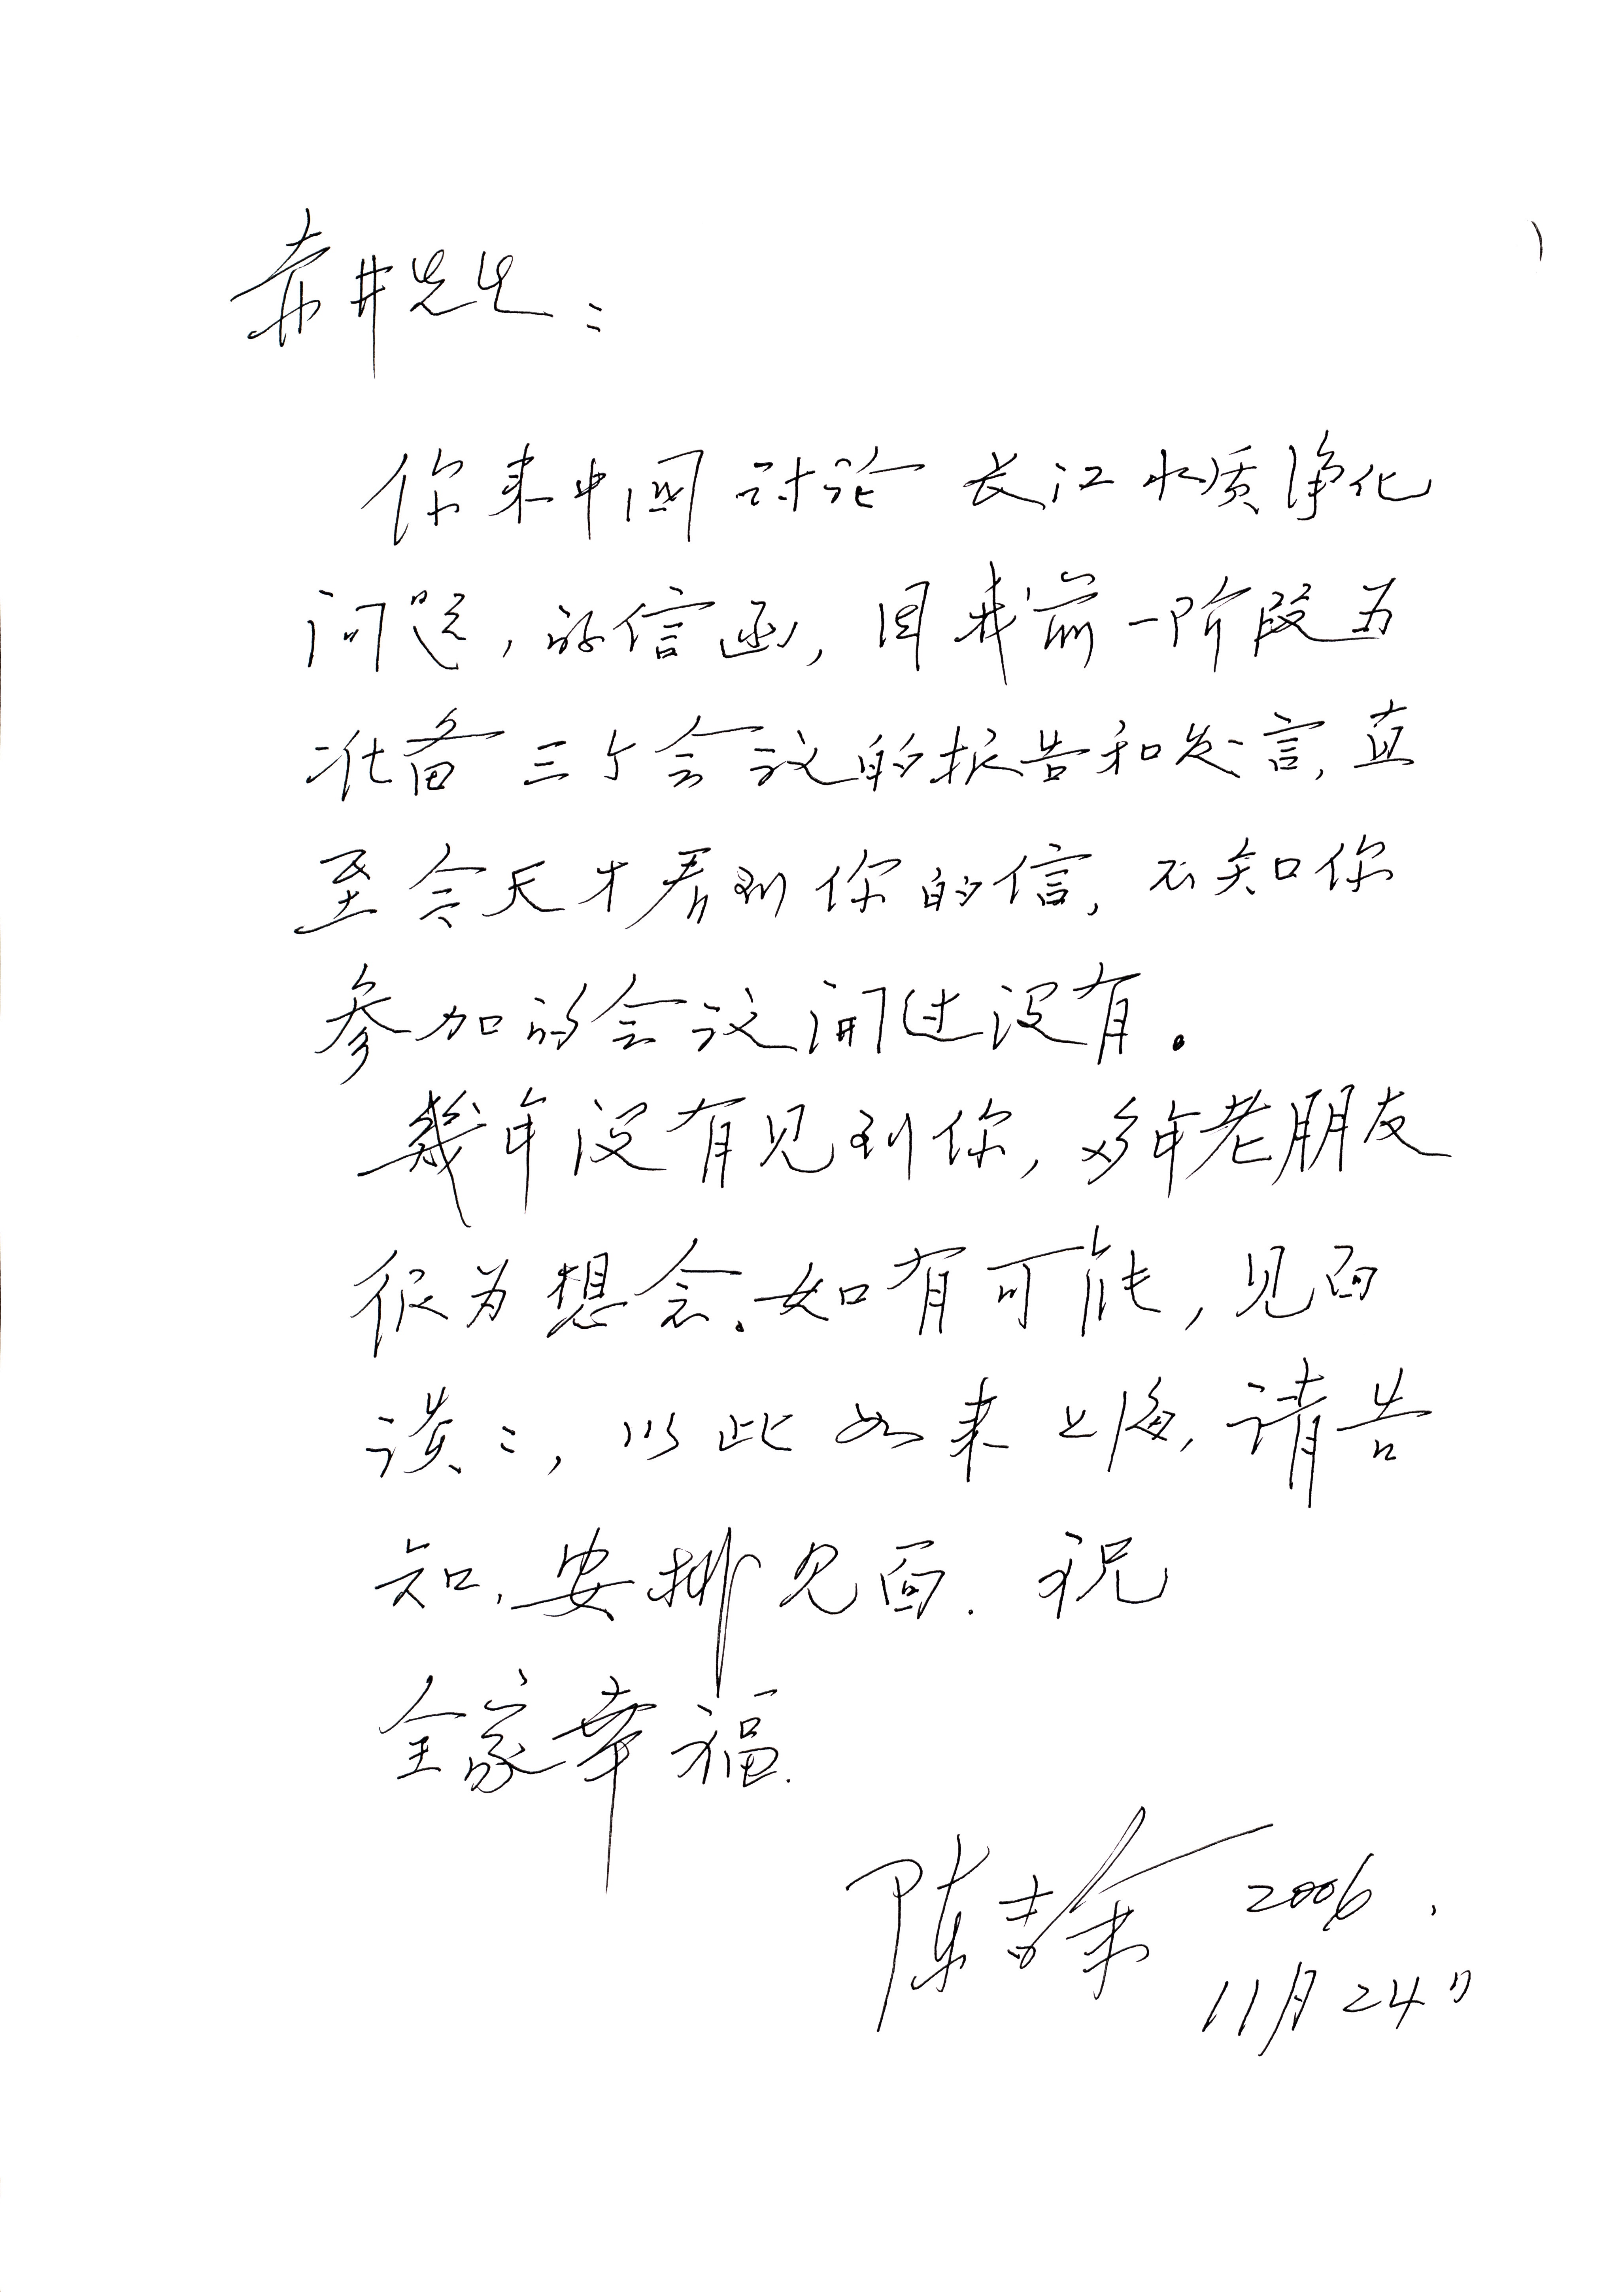 赤井先生：
你来中国讨论长江水质净化
问题，的信函，因我前一阶段为
准备三个会议的报告和发言，直
至今天才看到你的信，不知你
参加的会议开过没有。
幾年没有见到你，多年老朋友
很为想念。如有可能，见面
谈〻，以此如来上海，请告
知，安排见面．祝
全家幸福．
陈吉余 2006．
11月24日